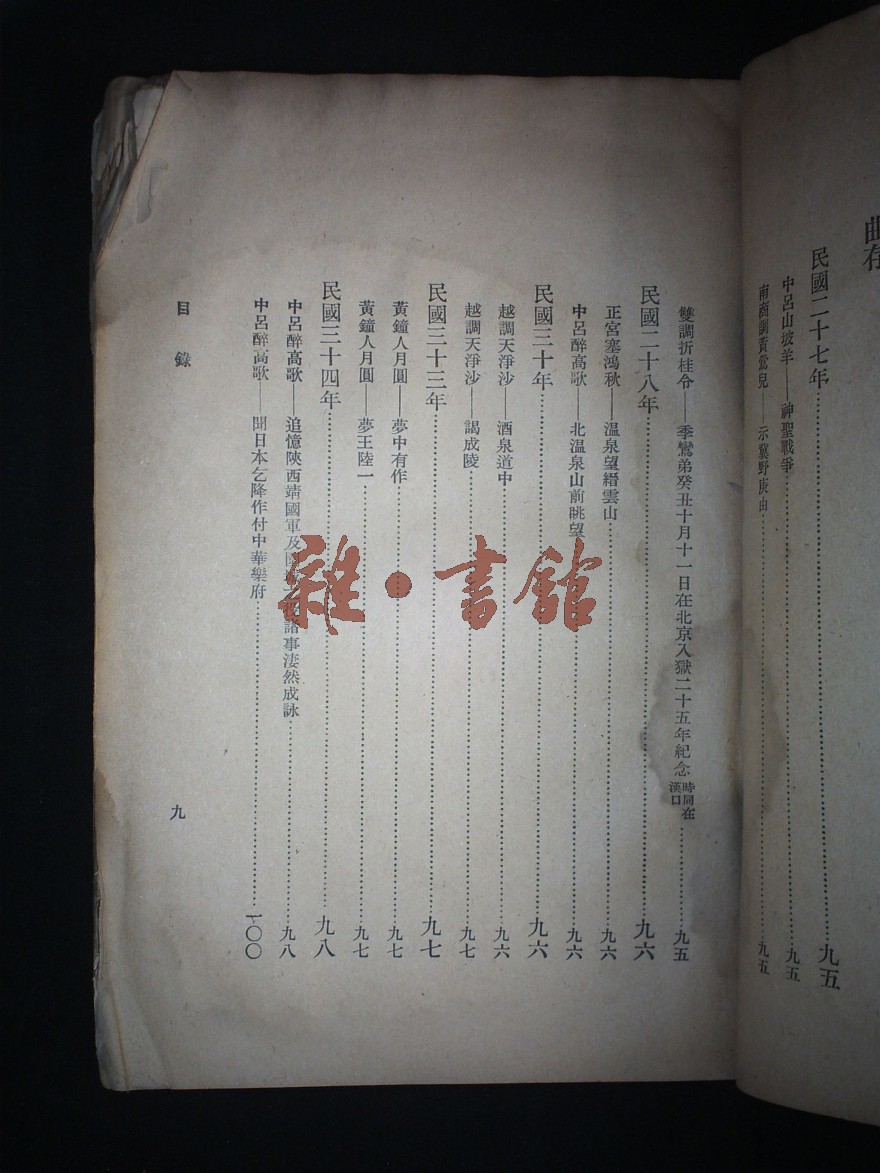 曲存
民國二十七年……九五
中呂山坡羊——神聖戰爭……九五
南商調黃鶯兒——示冀野庚由……九五
雙調折桂令——季鸞弟癸丑十月十一日在北京入獄二十五年紀念 時同在漢口……九五
民國二十八年……九六
正宮塞鴻秋——温泉望縉雲山……九六
中呂醉高歌——北温泉山前眺望……九六
民國三十年……九六
越調天淨沙——酒泉道中……九六
越調天淨沙——謁成陵……九七
民國三十三年……九七
黃鐘人月圓——夢中有作……九七
黃鐘人月圓——夢王陸一……九七
民國三十四年……九八
中呂醉高歌——追憶陝西靖國軍及諸事淒然成詠……九八
中呂醉高歌——聞日本乞降作付中華樂府……一〇〇
目錄
九
雜·書館